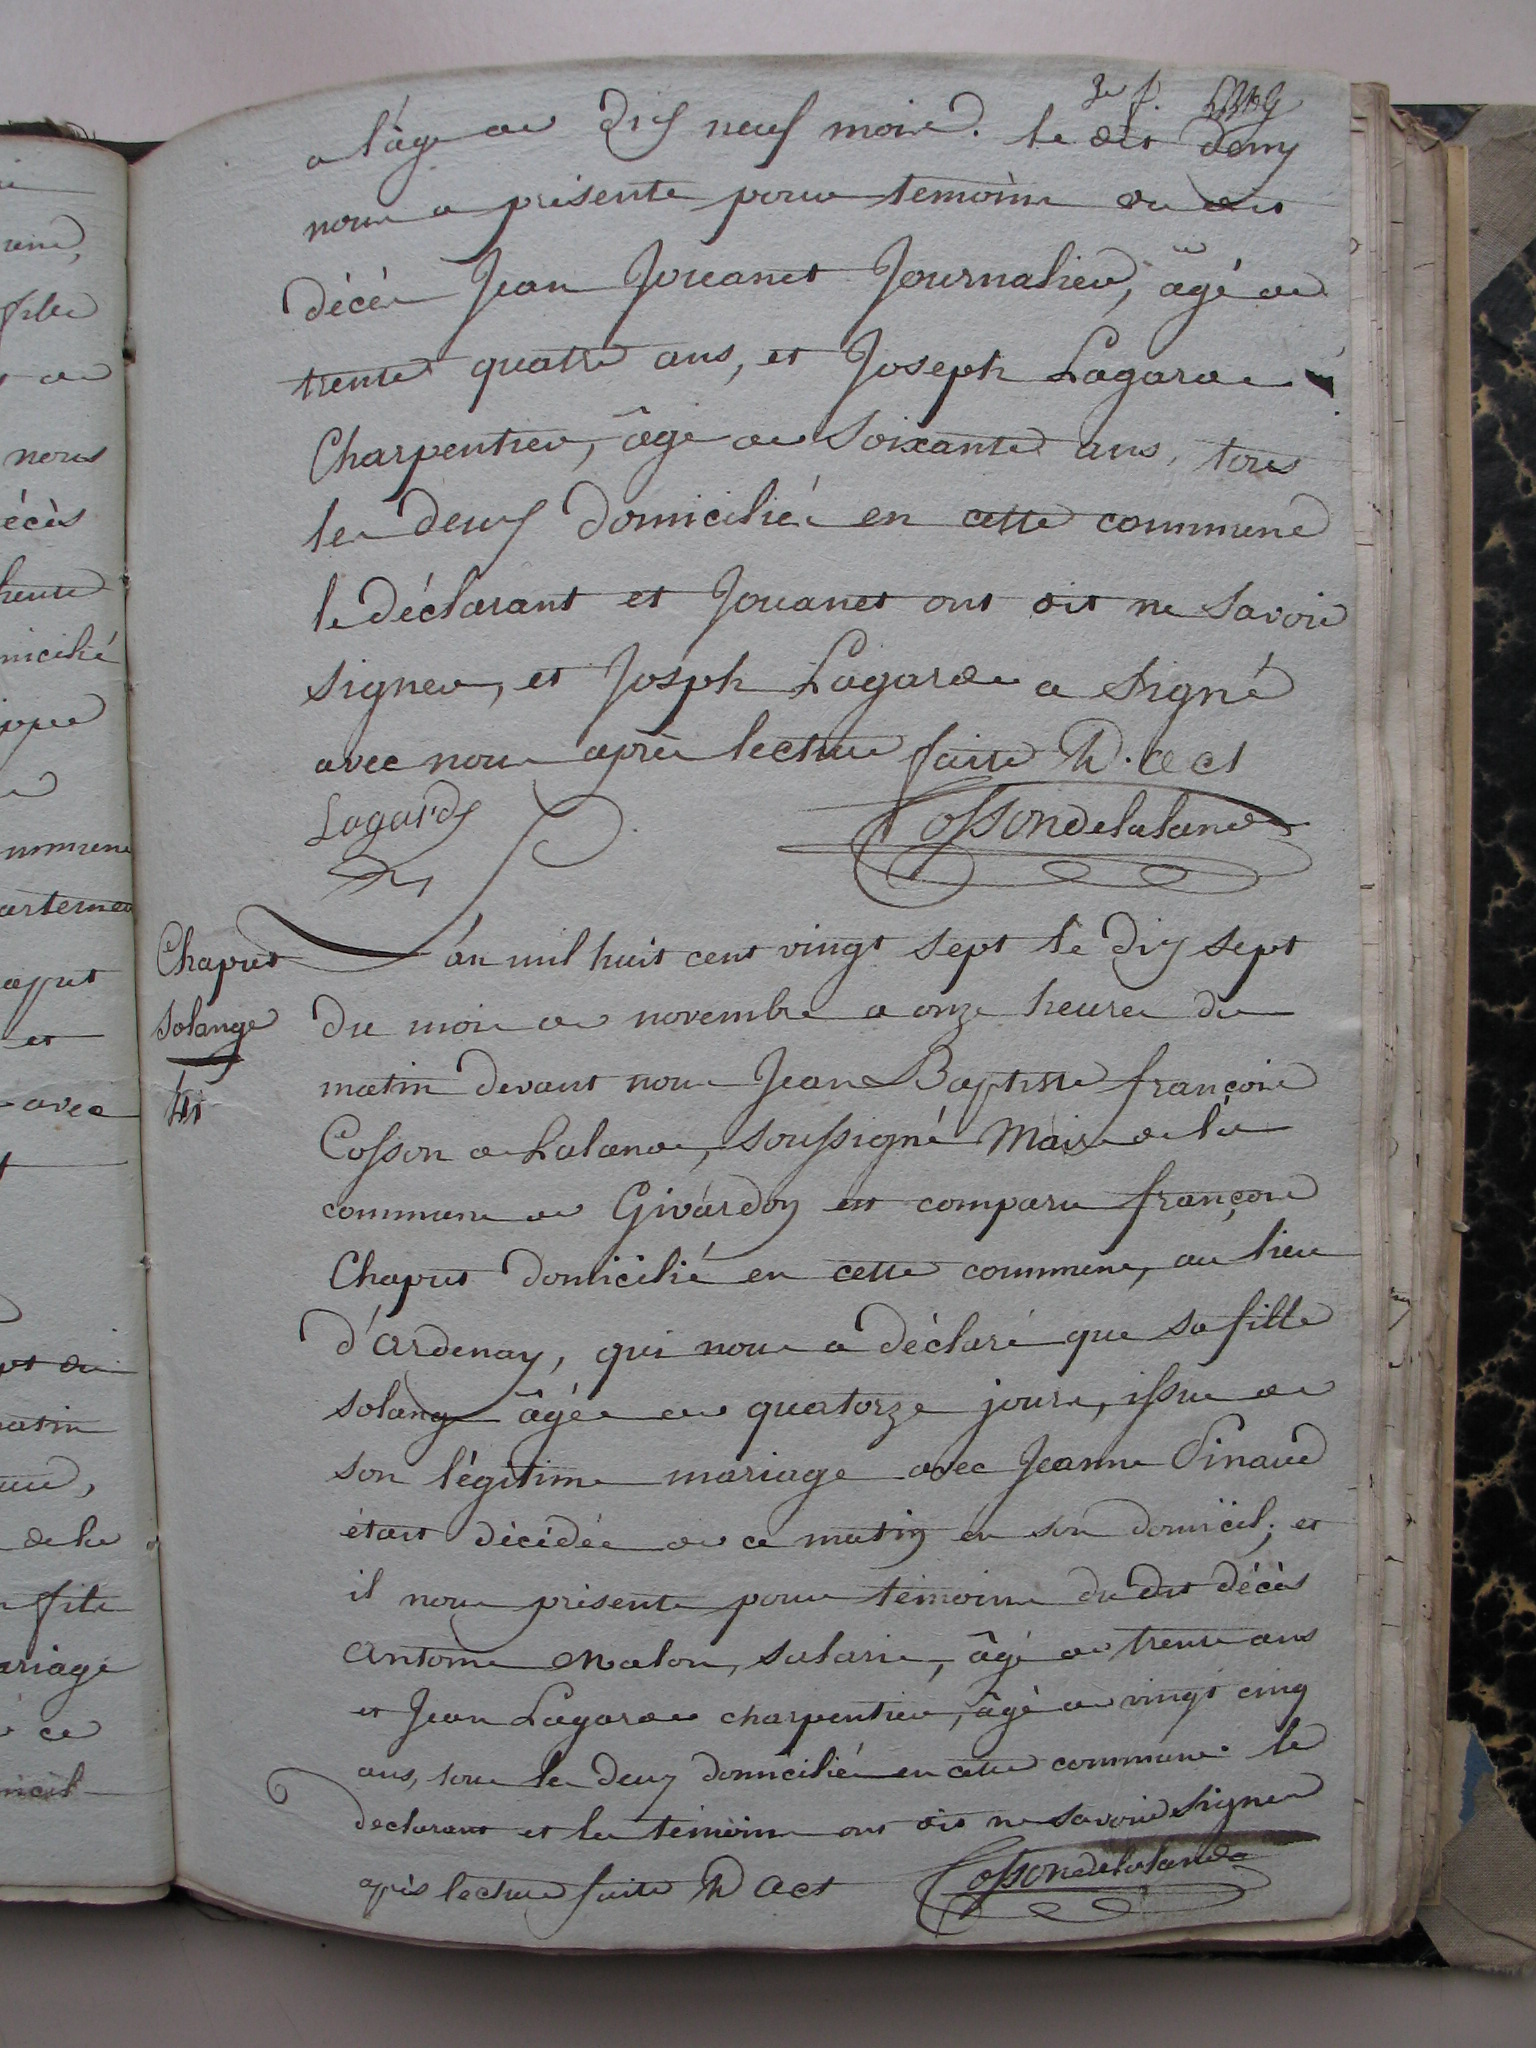 3e f.
a l'âge de dix neuf mois. le dit Deny
nous a présenté pour témoins du dit
décès Jean Jouanet Journalier, âgé de
trente quatre ans, et Joseph Lagarde
Charpentier, âgé de Soixante ans, tous
les deux domiciliés en cette commune
le déclarant et Jouanet ont dit ne Savoir
signer, et Josph Lagarde a Signé
avec nous après lecture faite D. act
Lagarde
Cossondelalande
Chaput
Solange
L'an mil huit cent vingt sept le dix sept
du mois de novembre a onze heures du
matin devant nous Jean Baptiste françois
Cosson de Lalande, soussigné Maire de la
commune de Givardon est comparu françois
Chaput domicilié en cette commune, au lieu
d'Ardenay, qui nous a déclaré que sa fille
solange âgée de quatorze jours, issue de
son légitime mariage avec Jeanne Pinaud
était décédée de ce matin en son domicil; et
il nous présente pour témoins du dit décès
Antoine Malon, salarié, âgé de trente ans
et Jean Lagarde charpentier, âgé de vingt cinq
ans, tous les deux domiciliés en cette commune. le
declarant et les témoins ont dit ne savoir signer
après lecture faite D act
Cossondelalande
nous
écès
avec
et
fils
ariage
ce